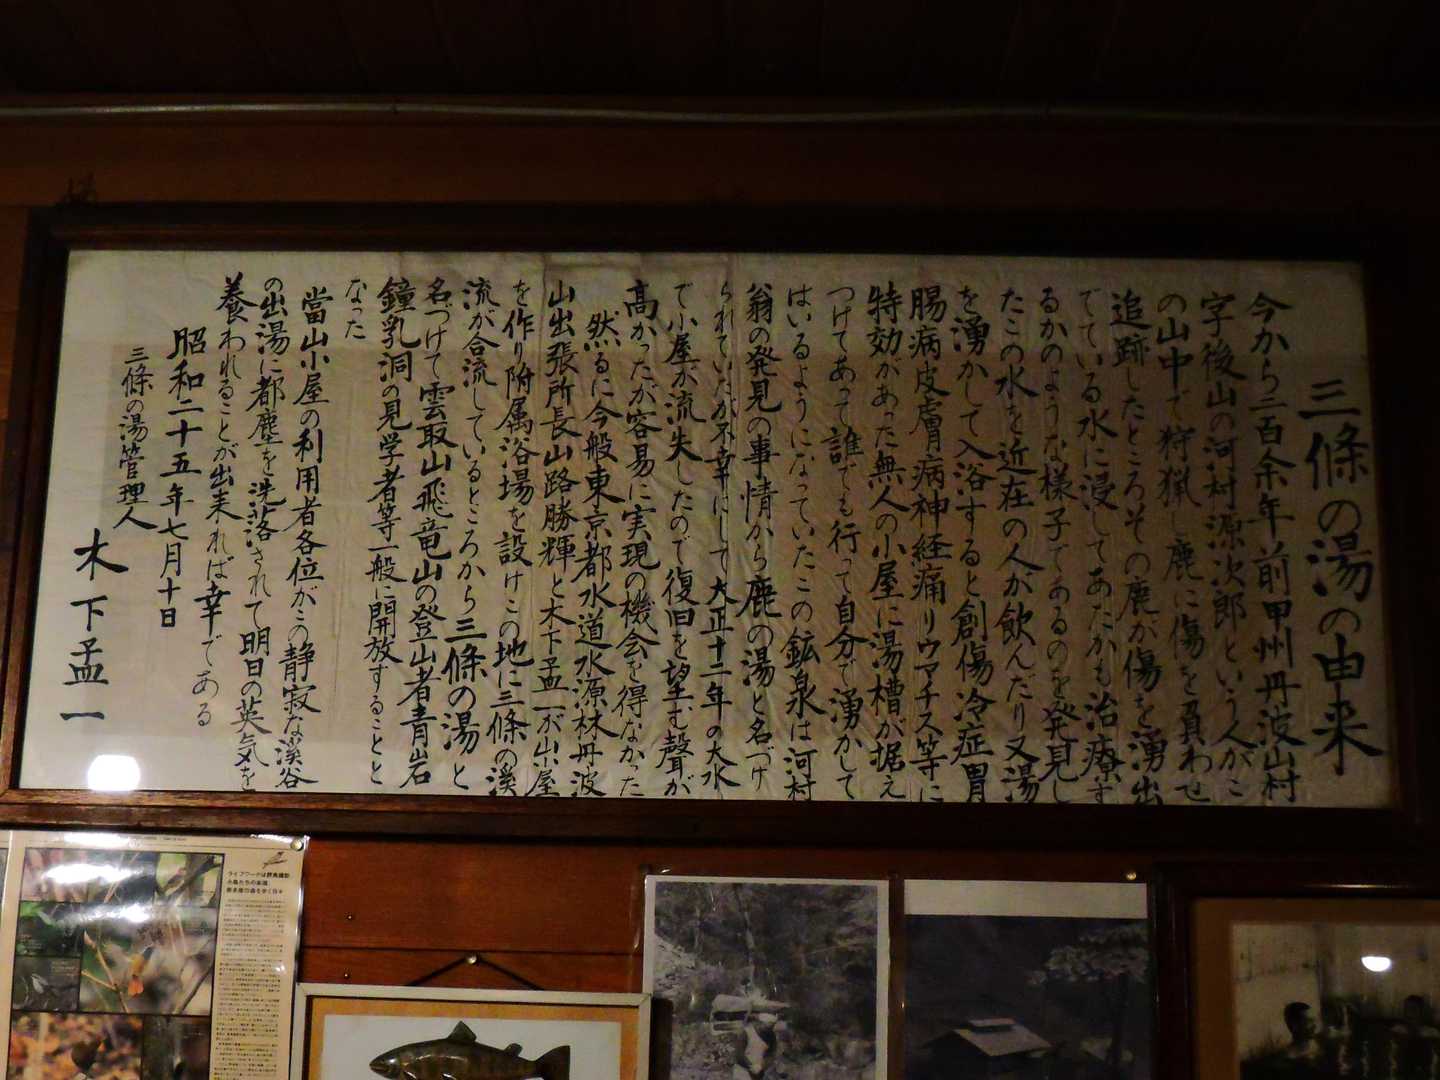 三條の湯の由来
今から二百余年前甲州丹波山村
字後山の河村源次郎という人がこ
の山中で狩猟し鹿に傷を負わせ
追跡したところその鹿が傷を湧出
でている水に浸してあたかも治療す
るかのような様子であるのを発見し
たこの水を近在の人が飲んだり又湯
を湧かして入浴すると創傷冷症胃
腸病皮膚病神経痛リウマチス等に
特効があった無人の小屋に湯槽が据え
つけてあって誰でも行って自分で湧かして
はいるようになっていたこの鉱泉は河村
翁の発見の事情から鹿の湯と名づけ
られていたが不幸にして大正十二年の大水
で小屋が流失したので復旧を望む聲が
高かったが容易に実現の機会を得なかった
然るに今般東京都水道水源林丹波
山出張所長山路勝輝と木下孟一が山小屋
を作り附属浴場を設けこの地に三條の溪
流が合流しているところから三條の湯と
名づけて雲取山飛竜山の登山者青岩
鐘乳洞の見学者等一般に開放することと
なった
當山小屋の利用者各位がこの静寂な溪谷
の出湯に都塵を洗落されて明日の英気を
養われることが出来れば幸である
昭和二十五年七月十日
三條の湯管理人
木下孟一
ライフワークは野鳥撮影